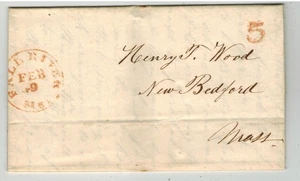 FALL RIVER
FEB
9
MS.
5
Henry T. Wood
New Bedford
Mass.